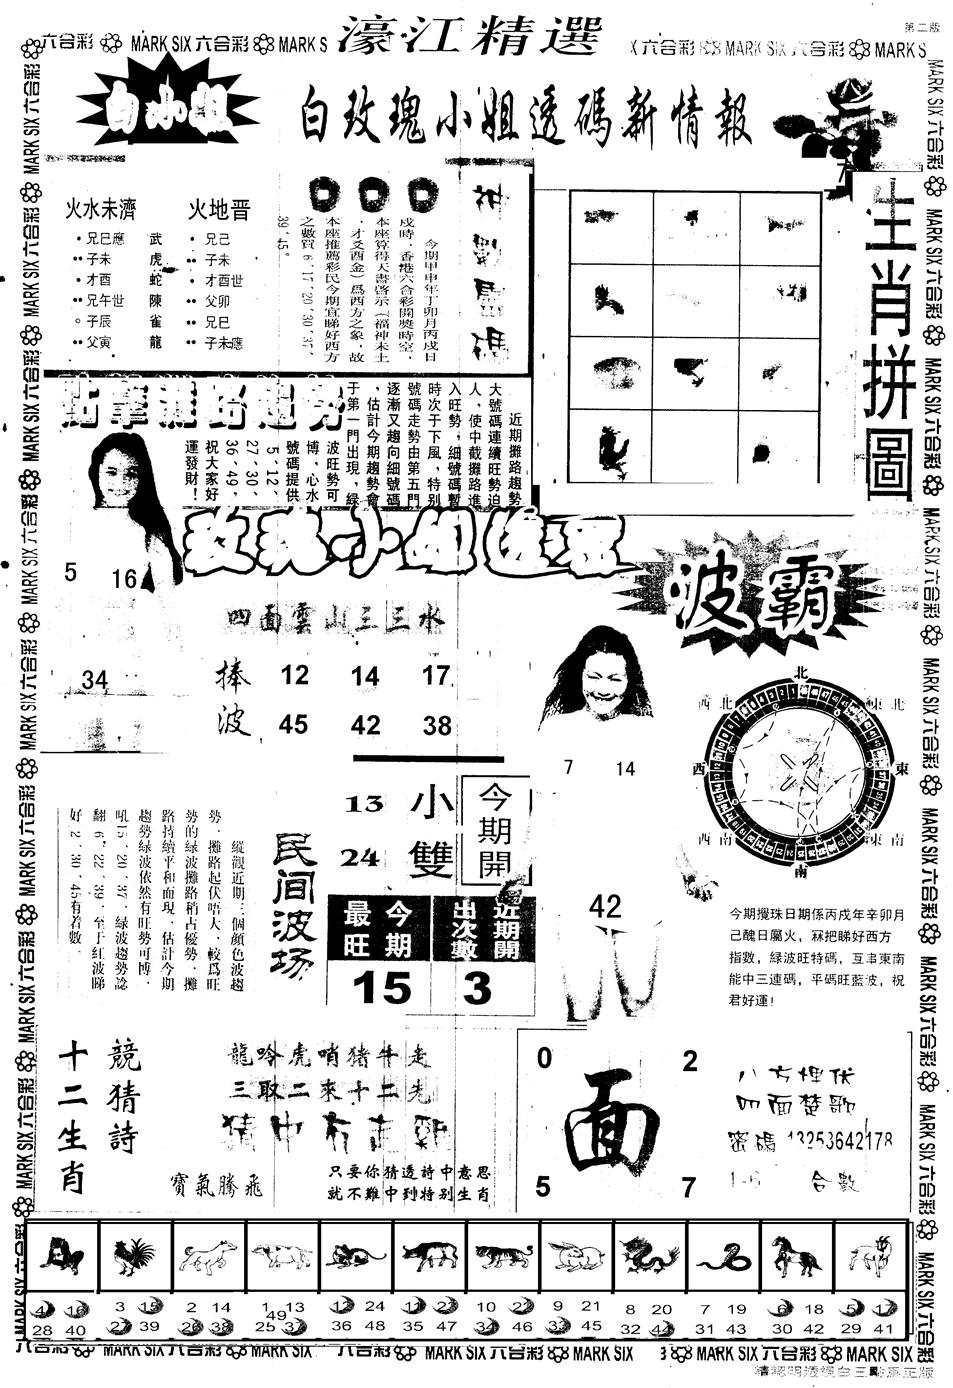 第二版
六合彩 MARK SIX 六合彩 MARK S
濠江精選
六合彩 MARK SIX 六合彩 MARK S
白小姐
白玫瑰小姐透碼新情報
火水未濟
火地晋
兄巳應 武 兄己
子未 虎 子未
才酉 蛇 才酉世
兄午世 陳 父卯
子辰 雀 兄巳
父寅 龍 子未應
今期甲申年丁卯月丙戌日
戌時，香港六合彩開獎時空，
本座算得天書啓示（福神未土
，才爻酉金）爲西方之象，故
本座推薦彩民今期宜睇好西方
之數買6、17、20、30、37、
39、45。
生肖拼圖
近期攤路趨勢
大號碼連續旺勢迫
人，使中截攤路進
入旺勢，細號碼暫
時次于下風，特别
號碼走勢由第五門
逐漸又趨向細號碼
，估計今期趨勢會
于第一門出現，綠
波旺勢可
博，心水
號碼提供
5、12、
27、30、
36、49，
祝大家好
運發財！
5 16
34
四面雲山三三水
捧波
12 14 17
45 42 38
波霸
7 14
42
北
西北 東北
西 東
西南 東南
南
今期攪珠日期係丙戌年辛卯月
己醜日屬火，冧把睇好西方
指數，綠波旺特碼，互串東南
能中三連碼，平碼旺藍波，祝
君好運！
縱觀近期三個顏色波趨
勢，攤路起伏唔大，較爲旺
勢的綠波攤路稍占優勢，攤
路持續平和而現，估計今期
趨勢綠波依然有旺勢可博，
吼15、20、37，綠波趨勢諗
翻6、22、39，至于紅波睇
好2、30、45有着數。
民间波场
今期開
13 小
24 雙
今期最旺
近期開出次數
15 3
十二生肖
競猜詩
龍吟虎哨猪牛走
三取二來十二先
寶氣騰飛
只要你猜透詩中意思
就不難中到特别生肖
0 2
面
5 7
八方埋伏
四面楚歌
密碼 13253642178
1-6 合數
4 16 28 40
3 15 27 39
2 14 26 38
1 13 25 37 49
12 24 36 48
11 23 35 47
10 22 34 46
9 21 33 45
8 20 32 44
7 19 31 43
6 18 30 42
5 17 29 41
六合彩 MARK SIX 六合彩 MARK SIX 六合彩 MARK SIX 六合彩 MARK SIX 六合彩 MARK SIX